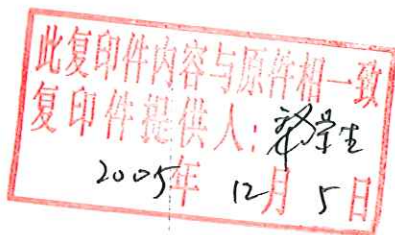 此复印件内容与原件相一致
复印件提供人:
2005年 12月 5日